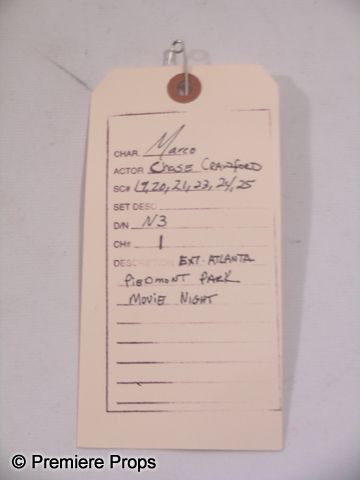 CHAR. Marco
ACTOR Chase Crawford
SC# 19, 20, 21, 23, 24, 25
SET DESC.
D/N N3
CH# 1
DESCRIPTION EXT. ATLANTA
PIEDMONT PARK
MOVIE NIGHT
© Premiere Props